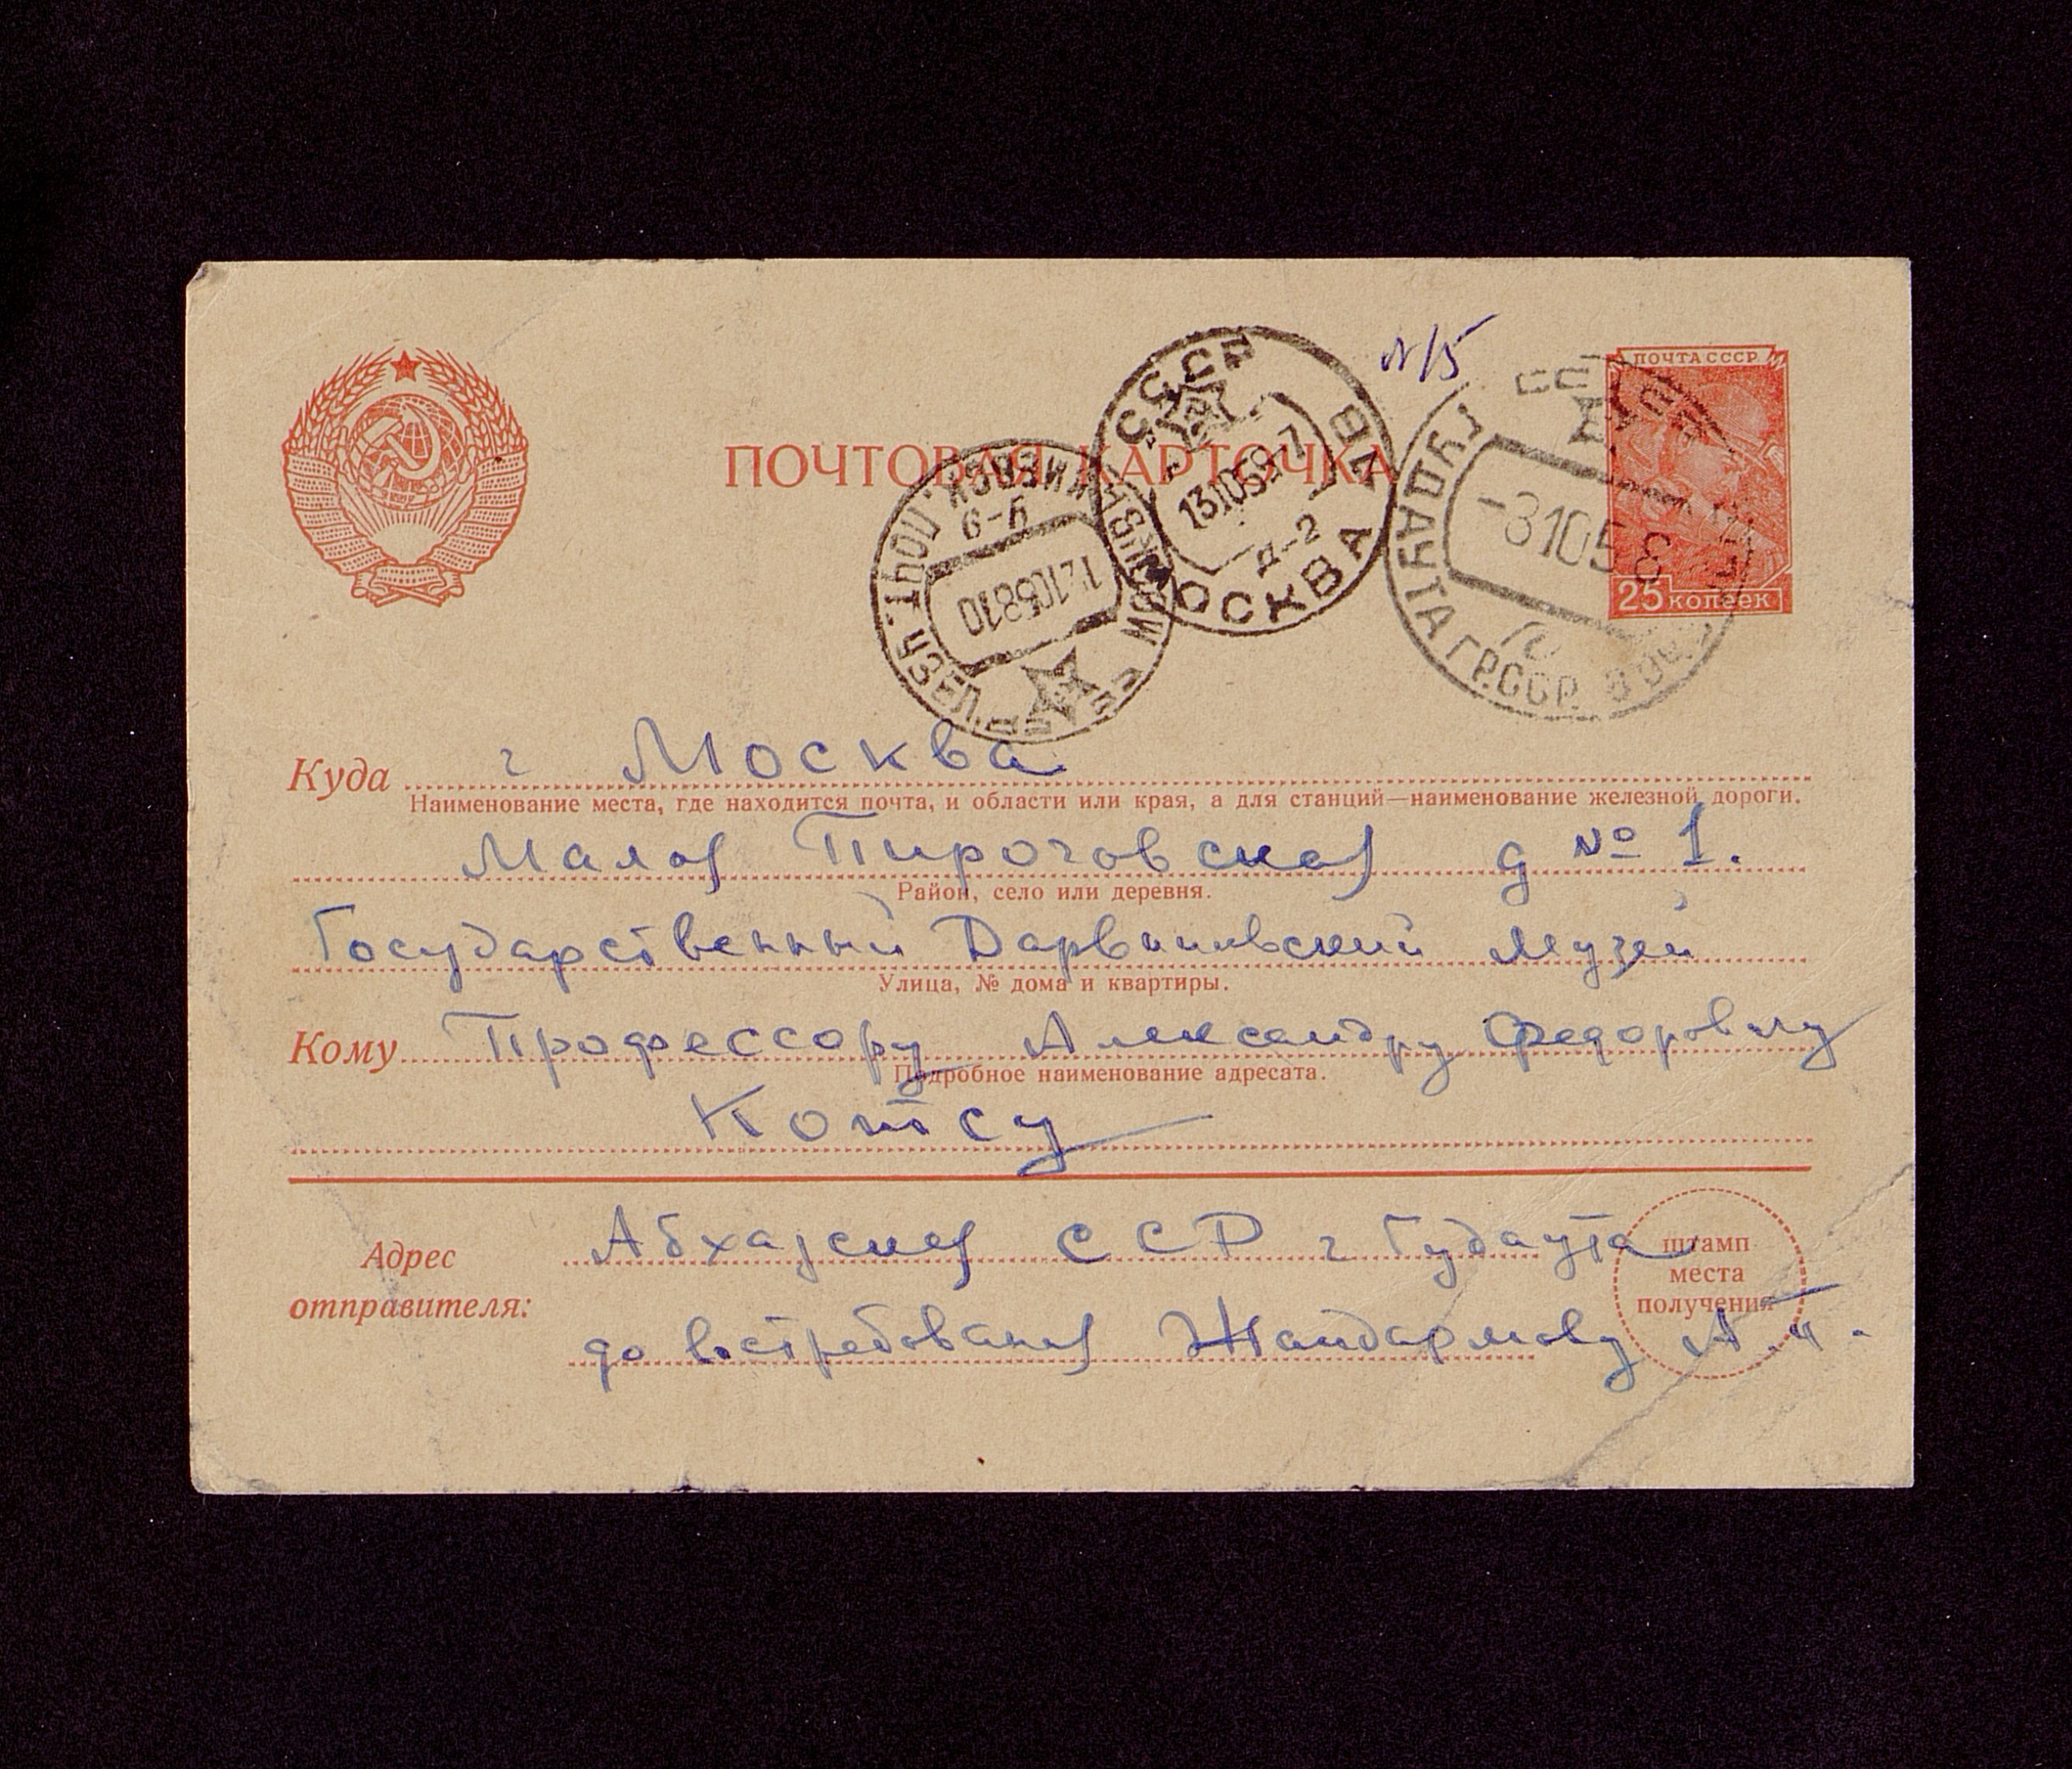 №15
ПОЧТА СССР
ПОЧТОВАЯ КАРТОЧКА
СССР
МОСКВА
131058-7
Д-2
ГУДАУТА ГР.ССР
-31058
6-9
14105810
25 копеек
Куда г Москва
Наименование места, где находится почта, и области или края, а для станций—наименование железной дороги.
Малая Пироговская д № 1.
Район, село или деревня.
Государственный Дарвиновский музей
Улица, № дома и квартиры.
Кому Профессору Александру Федоровичу
Подробное наименование адресата.
Котсу
Адрес отправителя:
Абхазская ССР г Гудаута
до востребования Жандармову А.П.
штамп
места
получения